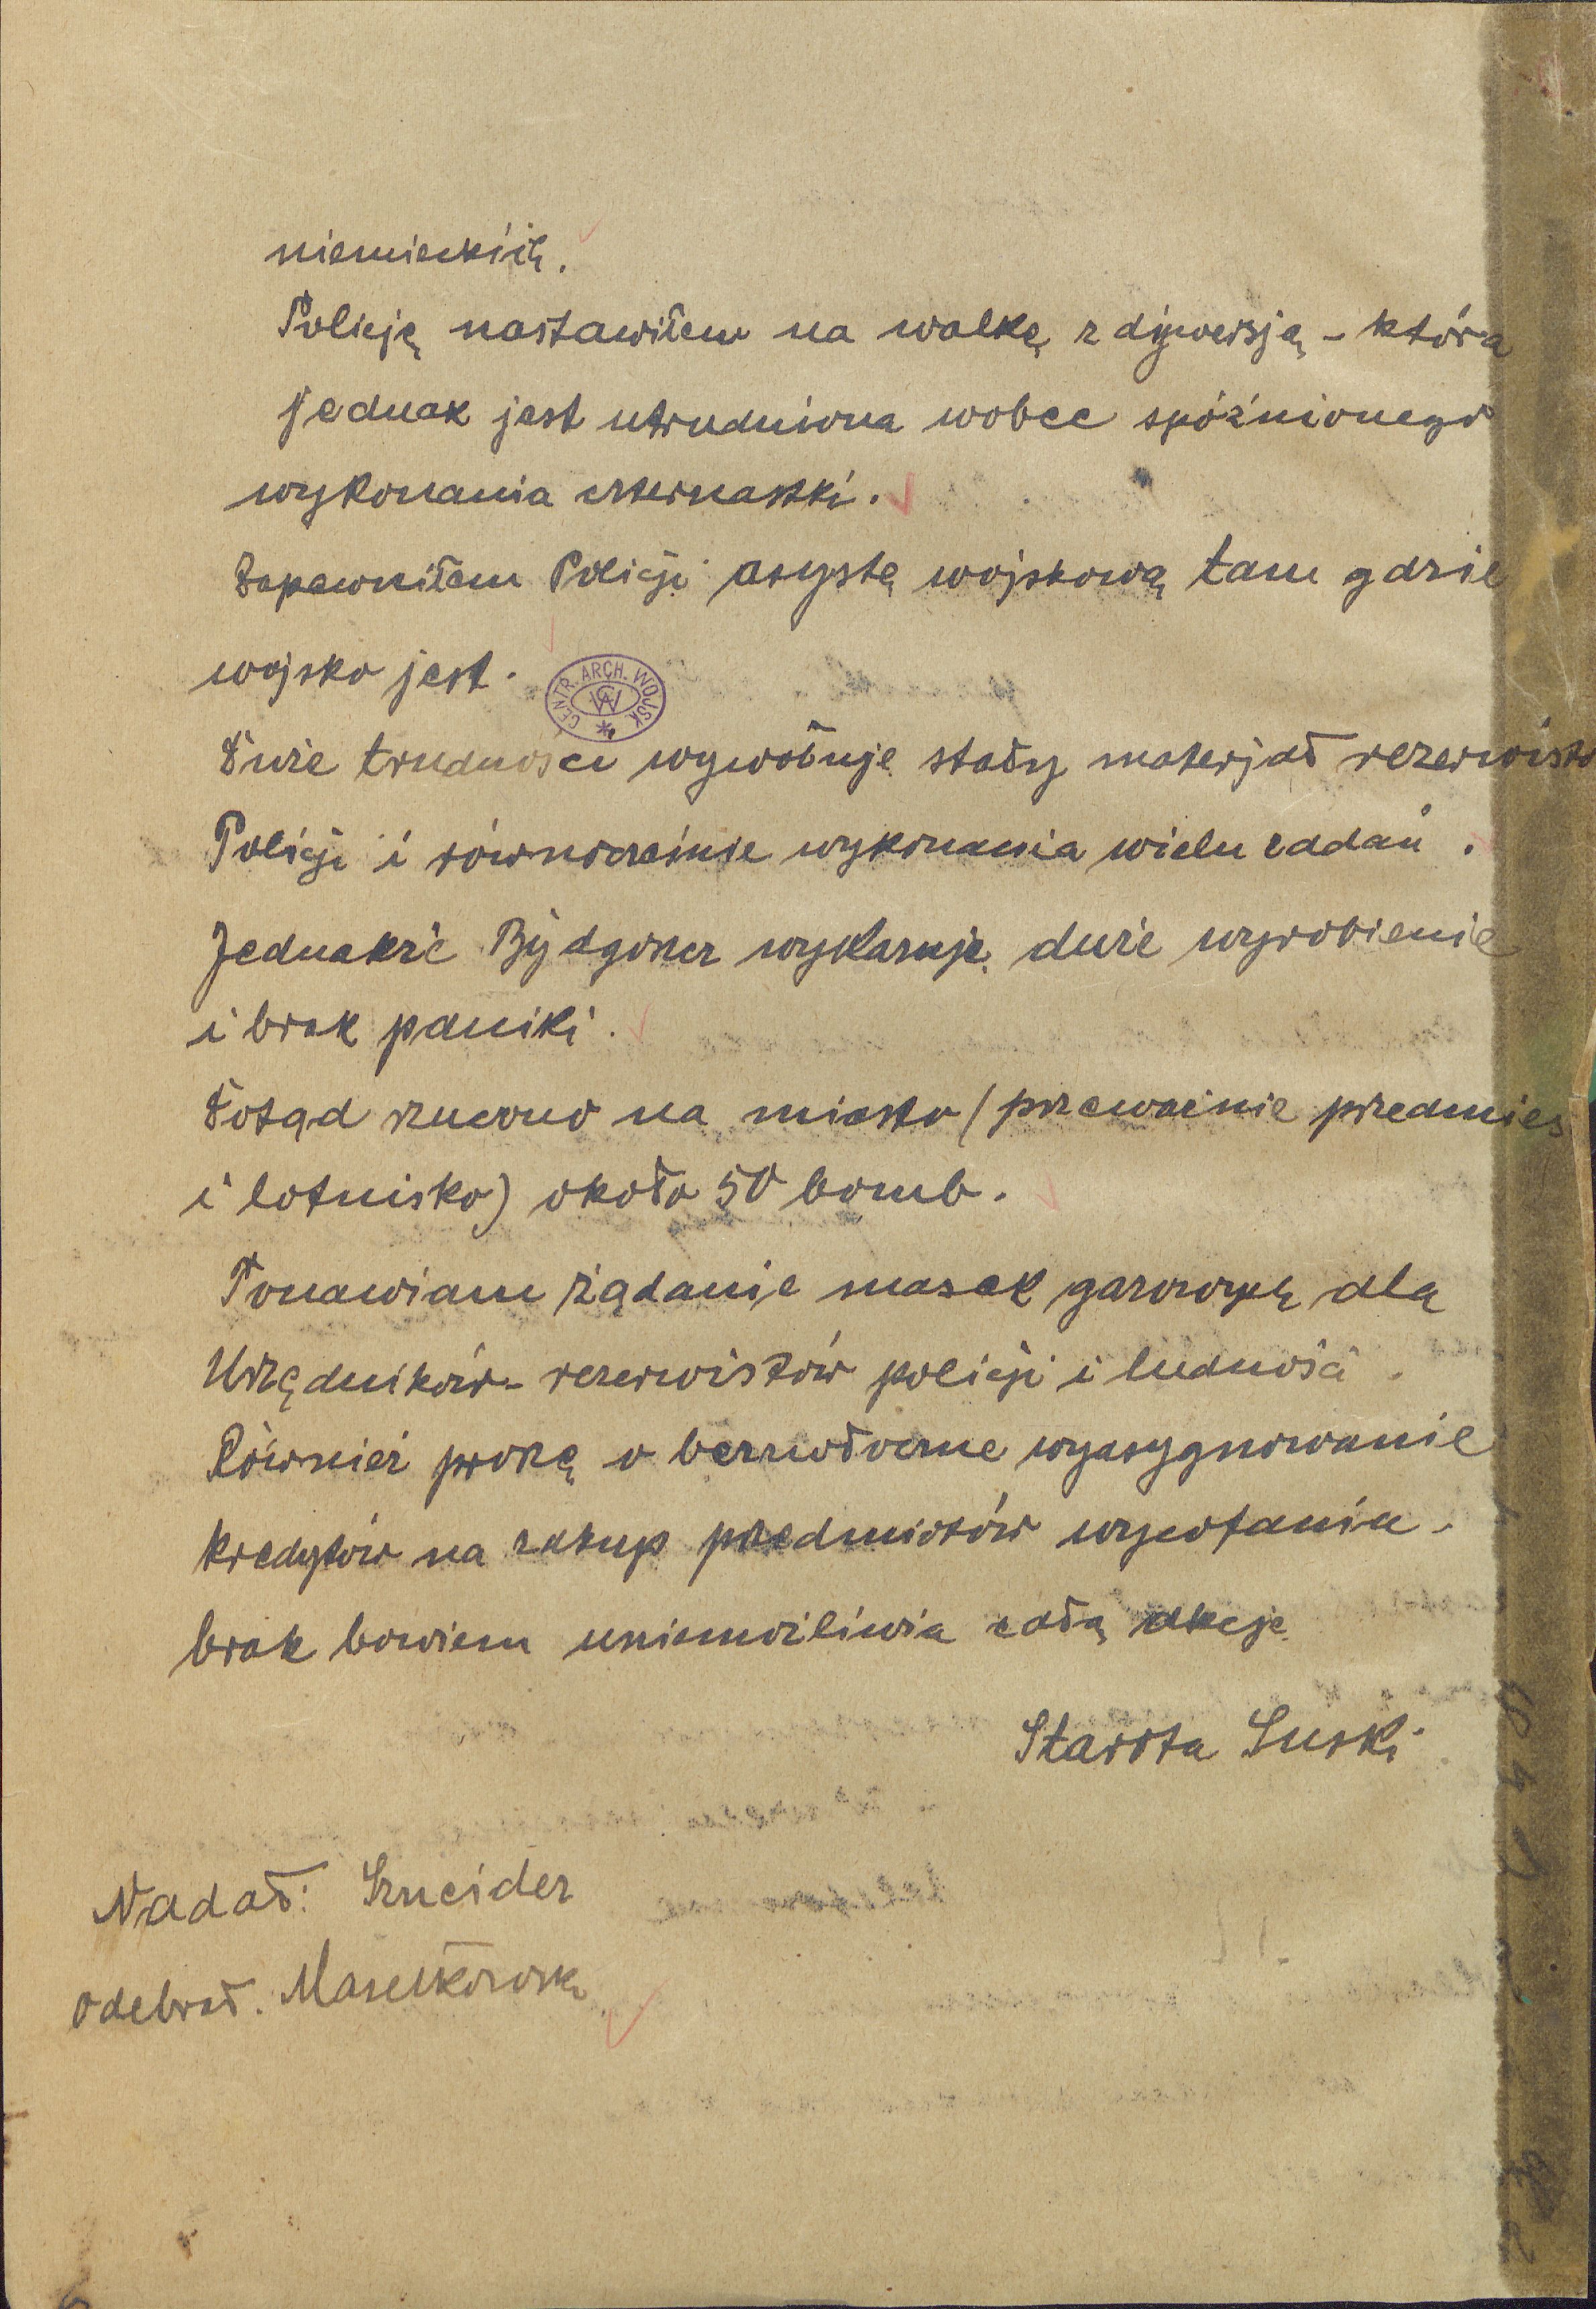 niemieckich.
Policję nastawiłem na walkę z dywersją – która
jednak jest utrudniona wobec spóźnionego
wykonania czternastki.
Zapewniłem Policji asystę wojskową tam gdzie
wojsko jest.
CENTR. ARCH. WOJSK
CAW
Duże trudności wywołuje stały materjał rezerwisto
Policji i równocześnie wykonania wielu zadań.
Jednakże Bydgoszcz wykazuje duże wyrobienie
i brak paniki.
Dotąd rzucono na miasto (przeważnie przedmieś
i lotnisko) około 50 bomb.
Ponawiam żądanie masek gazowych dla
Urzędników – rezerwistów policji i ludności.
Również proszę o bezzwłoczne wyasygnowanie
kredytów na zakup przedmiotów
brak bowiem uniemożliwia całą akcję
Starosta Suski
Nadał: Szneider
Odebrał.